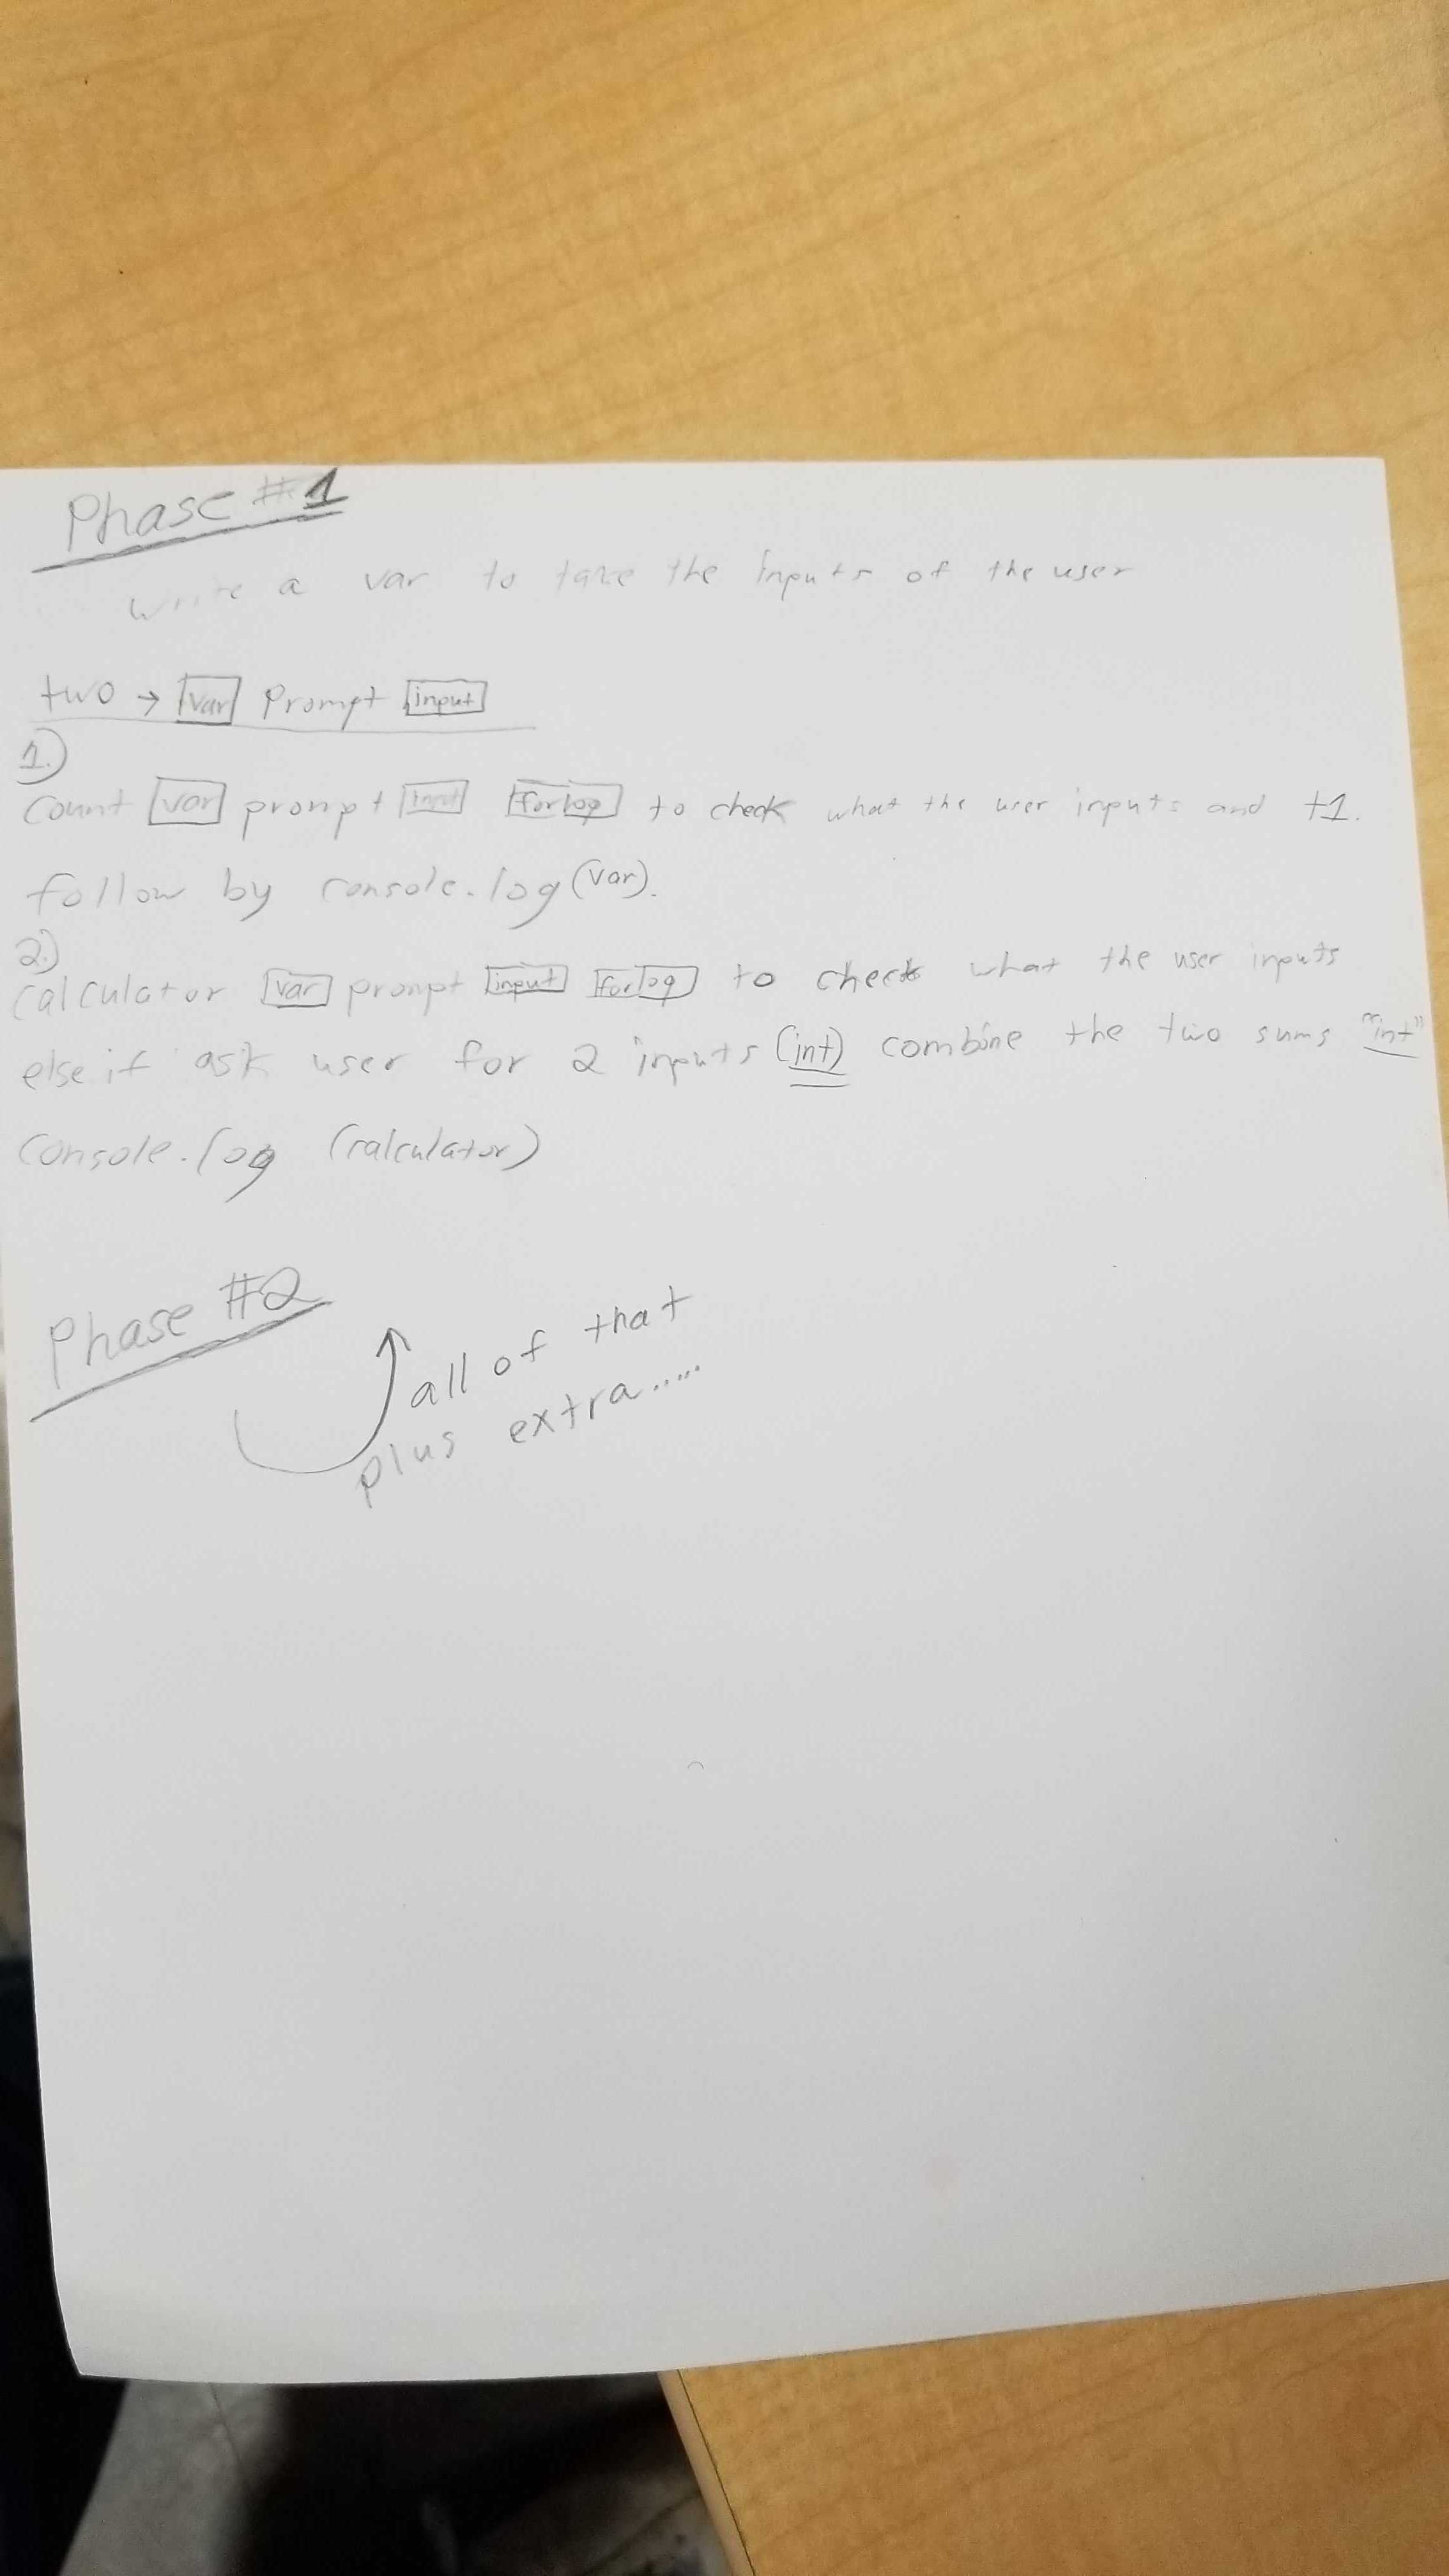 Phase #1
write a var to take the inputs of the user
two → var Prompt input
1.)
Count var prompt input forlog to check what the user inputs and +1.
follow by console.log(var).
2.)
calculator var prompt input forlog to check what the user inputs
else if ask user for 2 inputs (int) combine the two sums "int"
Console.log (calculator)
Phase #2
all of that
plus extra.....